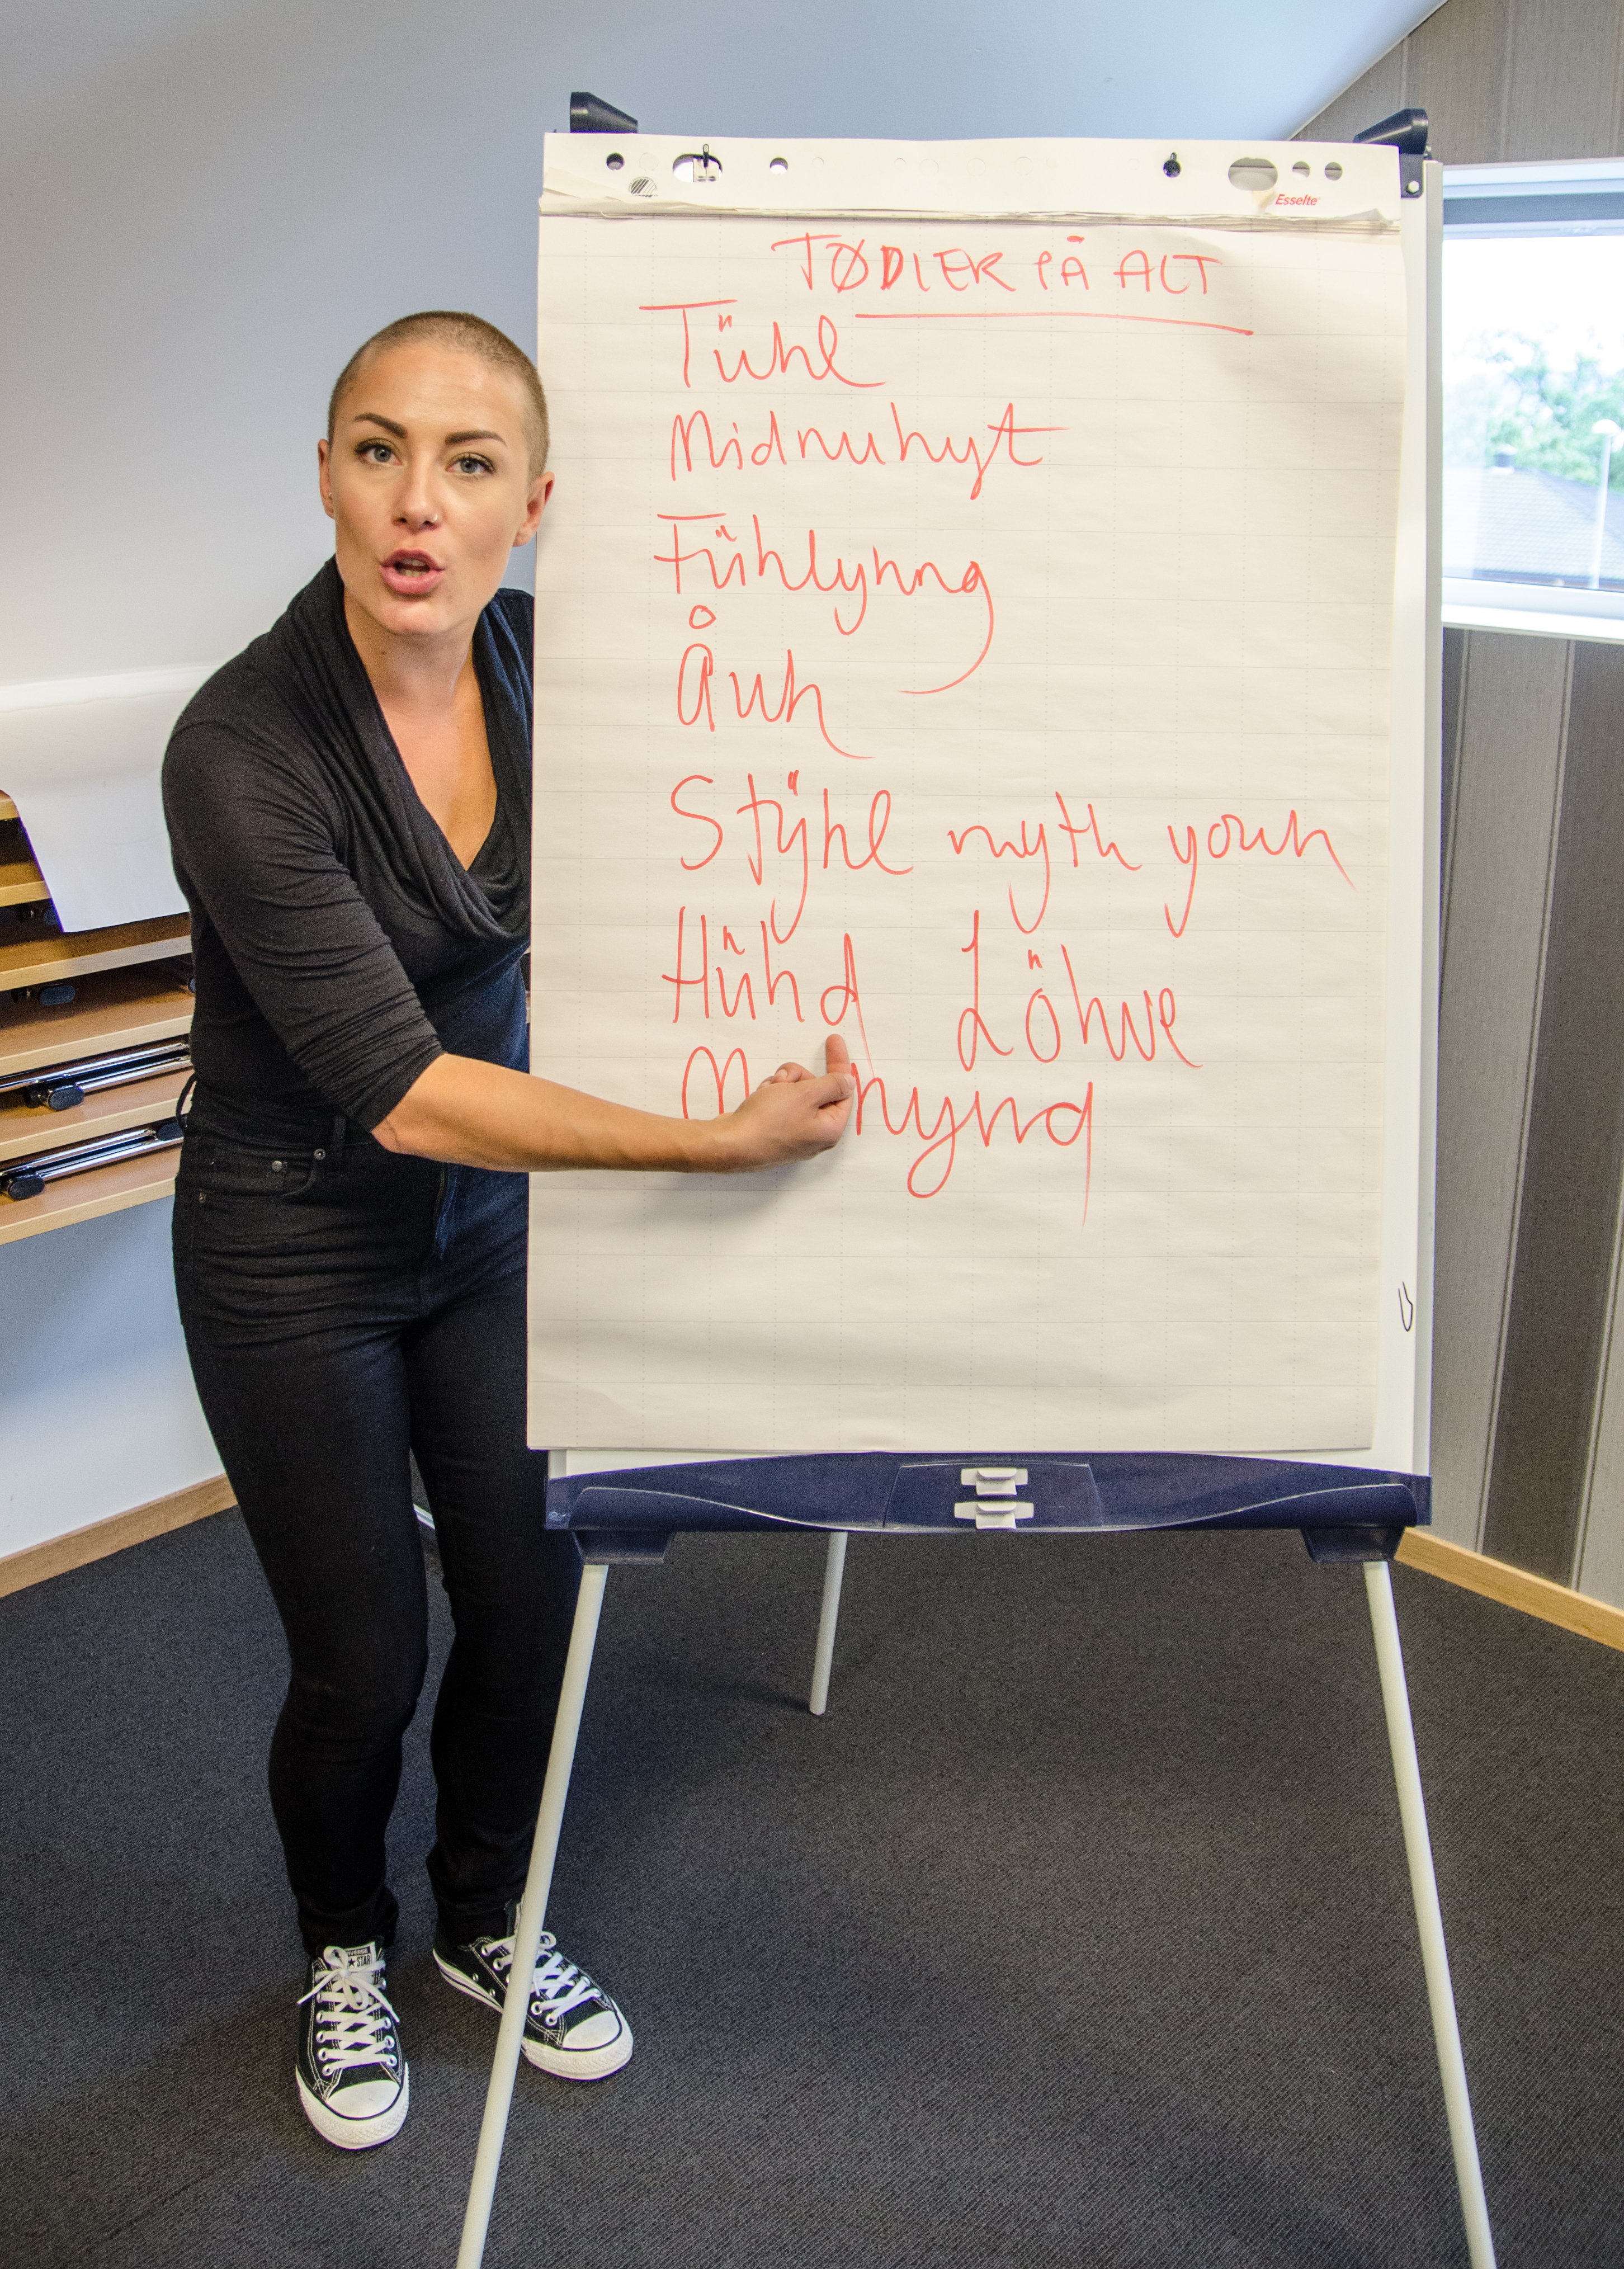 Esselte
TØDLER PÅ ALT
Tühl
Midnuhyt
Fühlyhng
Åuh
Stÿhl myth youh
Hühd Löhve